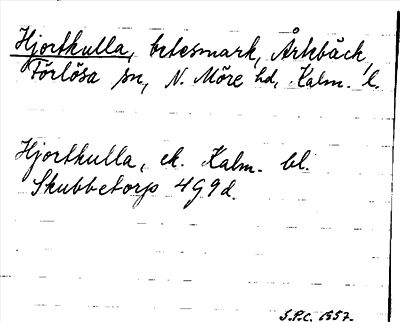 Hjortkulla, betesmark, Årbäck,
Förlösa sn, N. Möre hd, Kalm. l.
Hjortkulla, ek. Kalm. bl.
Skubbetorp 4G9d.
S.P.C. 1957.